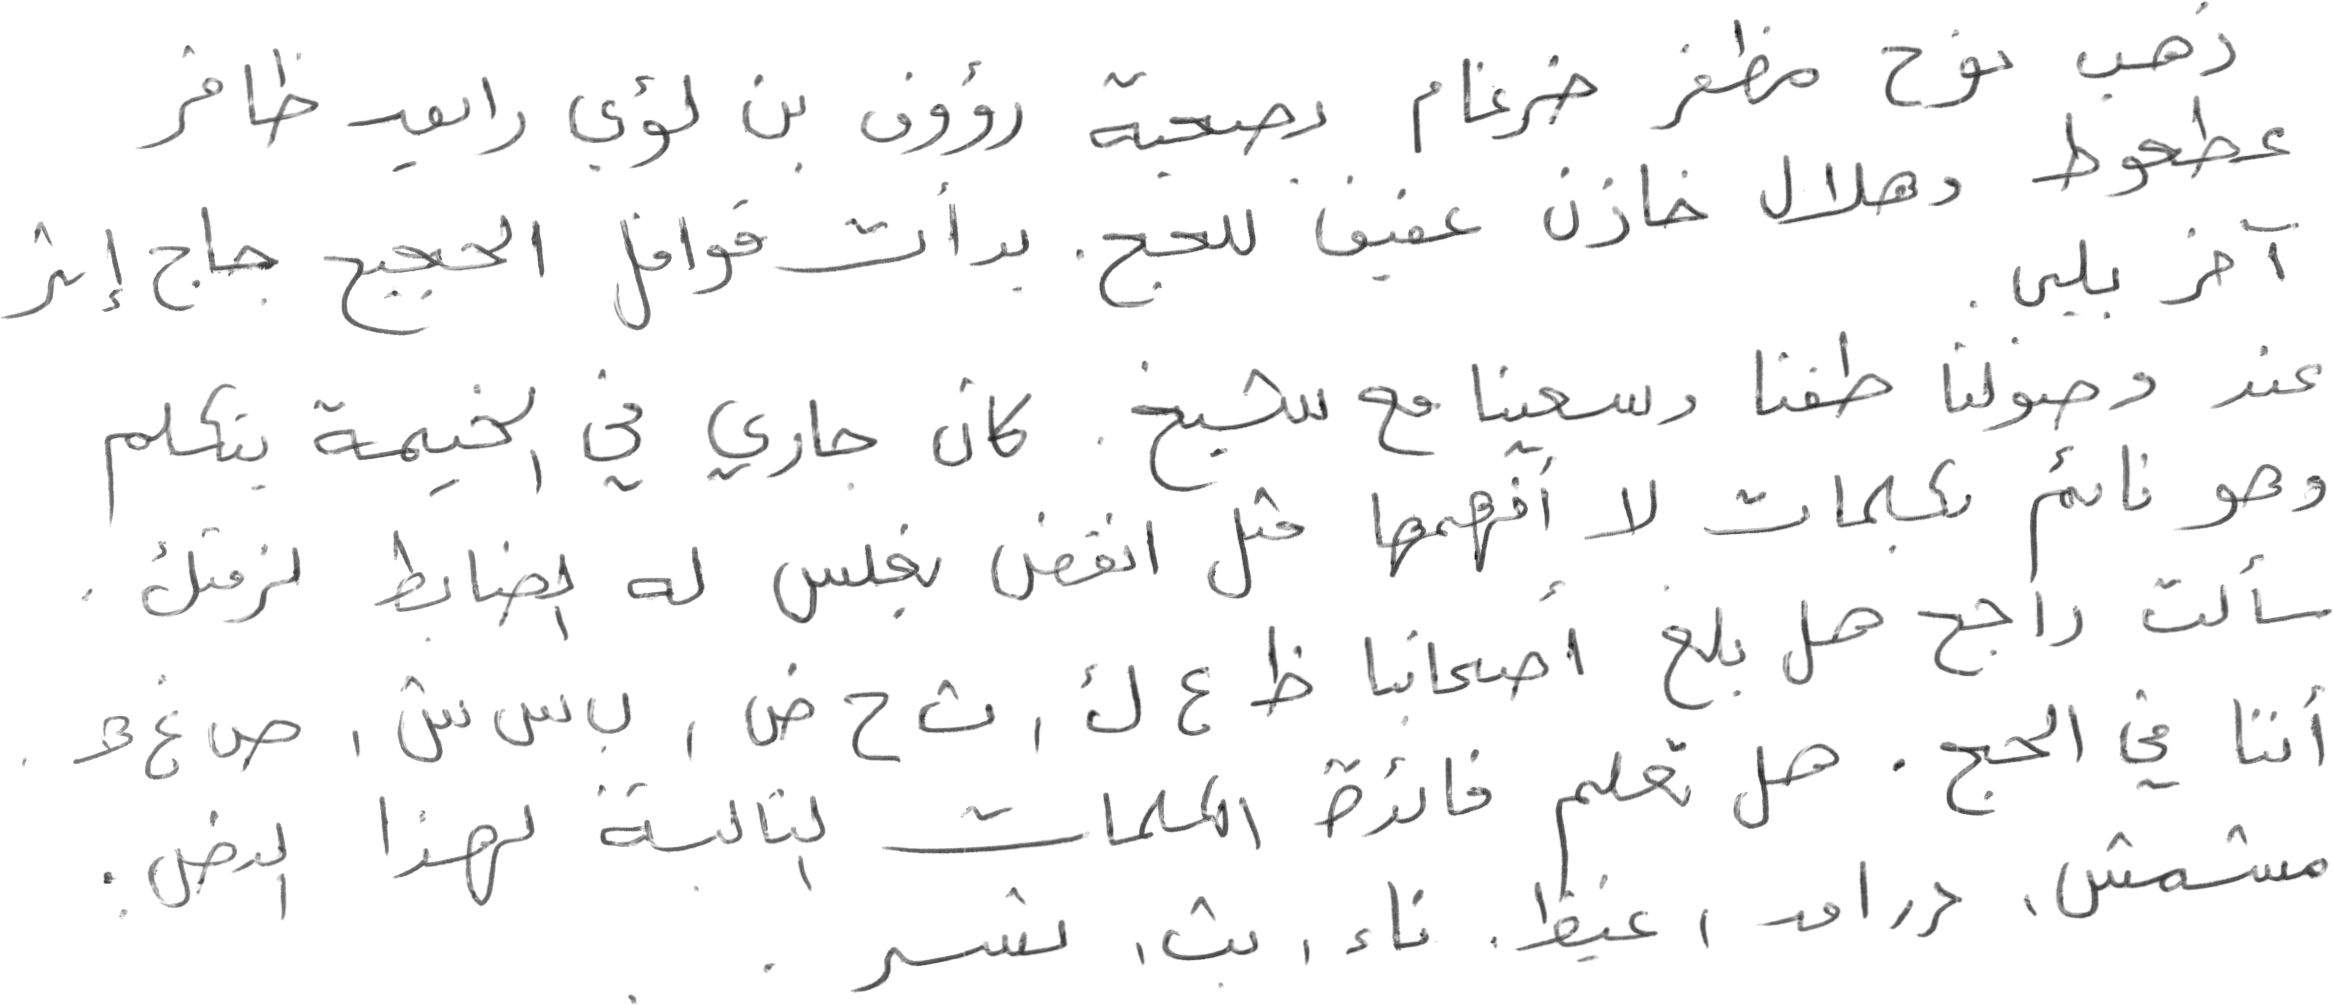 ذهب نوح مظفر ضرغام بصحبة رؤوف بن لؤي رائد ظافر
عطعوط وهلال خازن عفيفا للحج. بدأت قوافل الحجيج حاج إثر
آخر يلبي.
عند وصولنا طفنا وسعينا مع الشيخ. كان جاري في الخيمة يتكلم
وهو نائم بكلمات لا أفهمها مثل انقض بخلس له الضابط لزمتك.
سألت راجح هل بلغ أصحابنا ظ ع ك، ث ح ض، ب س ش، ص غ ه.
أننا في الحج. هل تعلم فائدة الكلمات التالية لهذا النص:
مشمش، غيظ. ناء، بث،